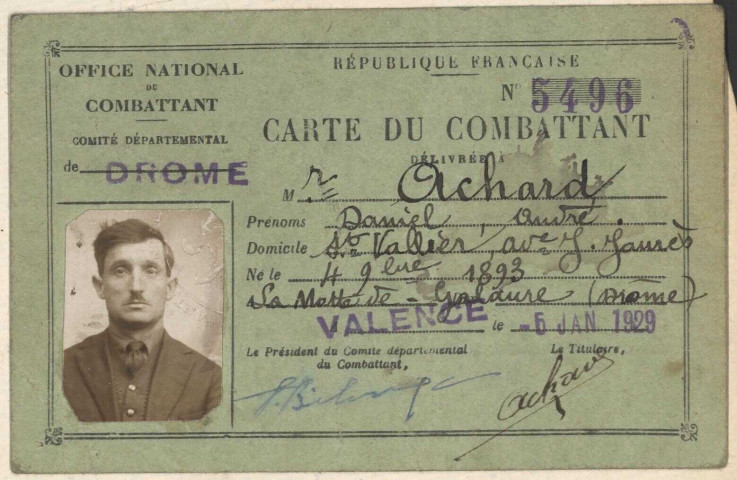 OFFICE NATIONAL
DU
COMBATTANT
COMITÉ DÉPARTEMENTAL
de DROME
RÉPUBLIQUE FRANÇAISE
N° 5496
CARTE DU COMBATTANT
DÉLIVRÉE À
M r Achard
Prénoms Daniel, André.
Domicile St Vallier, ave J. Jaurès
Né le 4 9bre 1893
La Motte de - Galaure (Drôme)
VALENCE le -5 JAN 1929
Le Président du Comité départemental
du Combattant,
Le Titulaire,
Achard